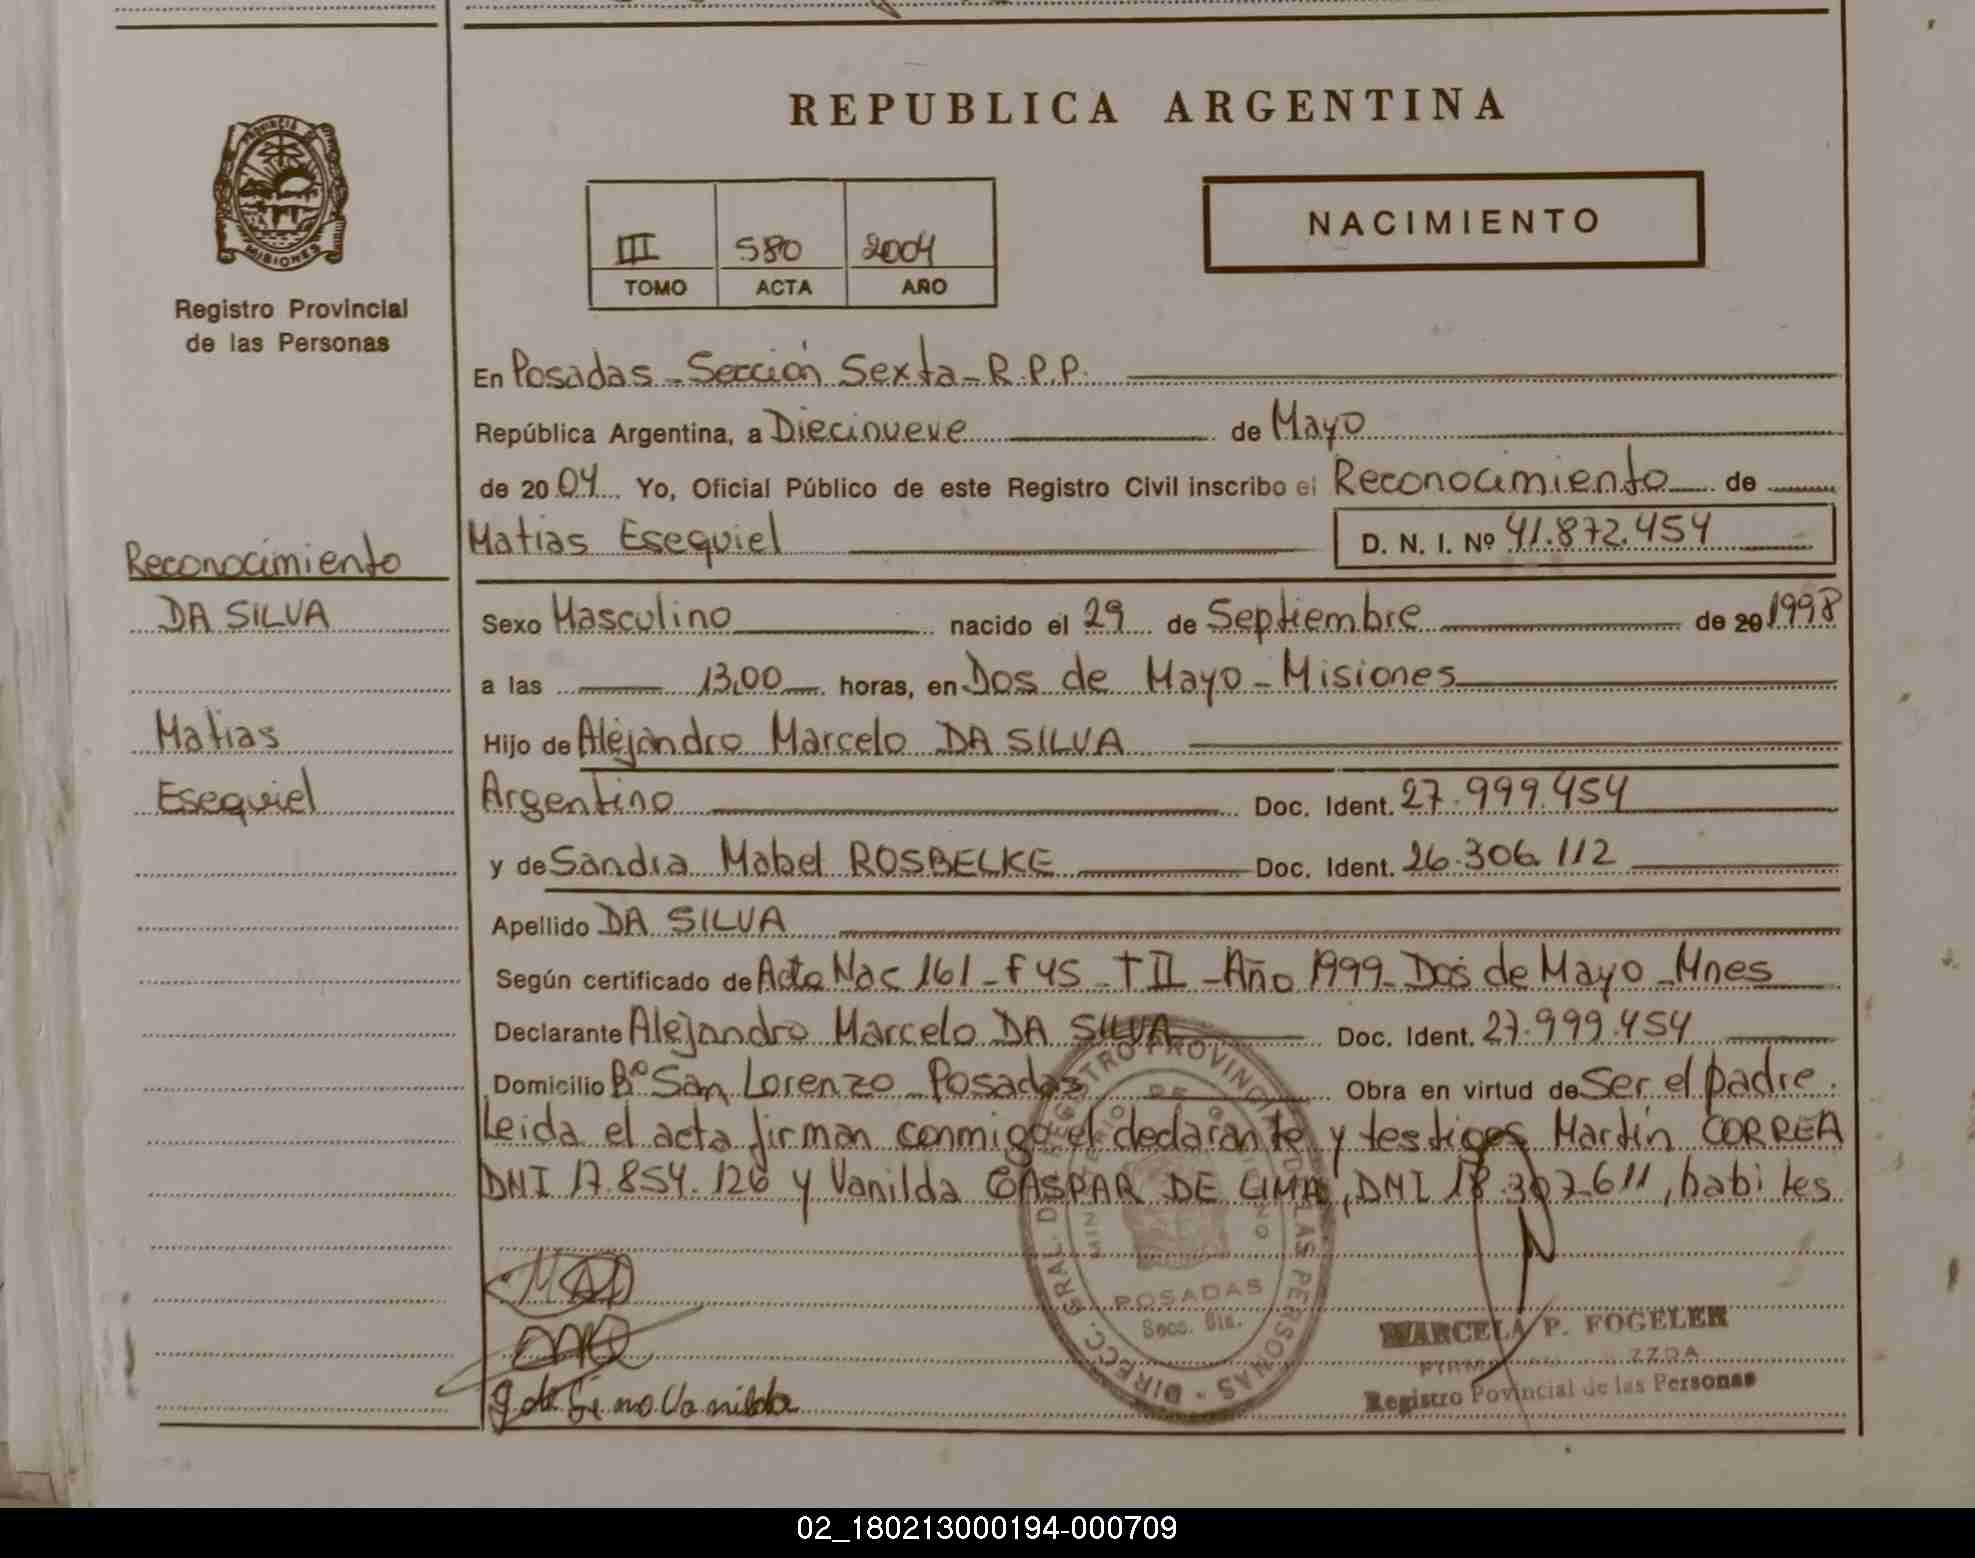 REPUBLICA ARGENTINA
PROVINCIA DE
MISIONES
Registro Provincial
de las Personas
III 580 2004
TOMO ACTA AÑO
NACIMIENTO
En Posadas - Sección Sexta - R.P.P.
República Argentina, a Diecinueve de Mayo
de 2004 Yo, Oficial Público de este Registro Civil inscribo el Reconocimiento de
Matias Esequiel D. N. I. Nº 41.872.454
Reconocimiento
DA SILVA
Matias
Esequiel
Sexo Masculino nacido el 29 de Septiembre de 20 1998
a las 13,00 horas, en Dos de Mayo - Misiones
Hijo de Alejandro Marcelo DA SILVA
Argentino Doc. Ident. 27.999.454
y de Sandra Mabel ROSBELKE Doc. Ident. 26.306.112
Apellido DA SILVA
Según certificado de Acta Nac 161 - F 45 - T II - Año 1999 - Dos de Mayo - Mnes
Declarante Alejandro Marcelo DA SILVA Doc. Ident. 27.999.454
Domicilio Bº San Lorenzo - Posadas Obra en virtud de Ser el padre.
Leida el acta firman conmigo el declarante y testigos Martín CORREA
DNI 17.854.126 y Vanilda GASPAR DE LIMA, DNI 18.307.611, habiles
DIRECC. GRAL. DE REGISTRO PROVINCIAL DE LAS PERSONAS
MINISTERIO DE GOBIERNO
POSADAS
Secc. 6ta.
MARCELA P. FOGELER
Registro Povincial de las Personas
02_180213000194-000709